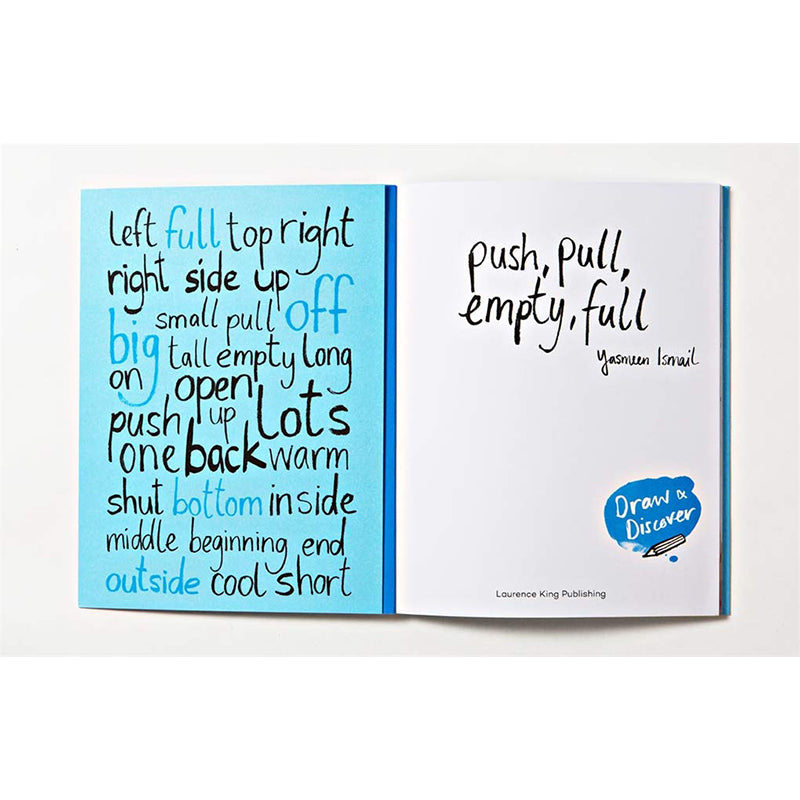 left full top right
right side up
small pull off
big tall empty long
on open
push up lots
one back warm
shut bottom inside
middle beginning end
outside cool short
push, pull,
empty, full
Yasmeen Ismail
Draw &
Discover
Laurence King Publishing